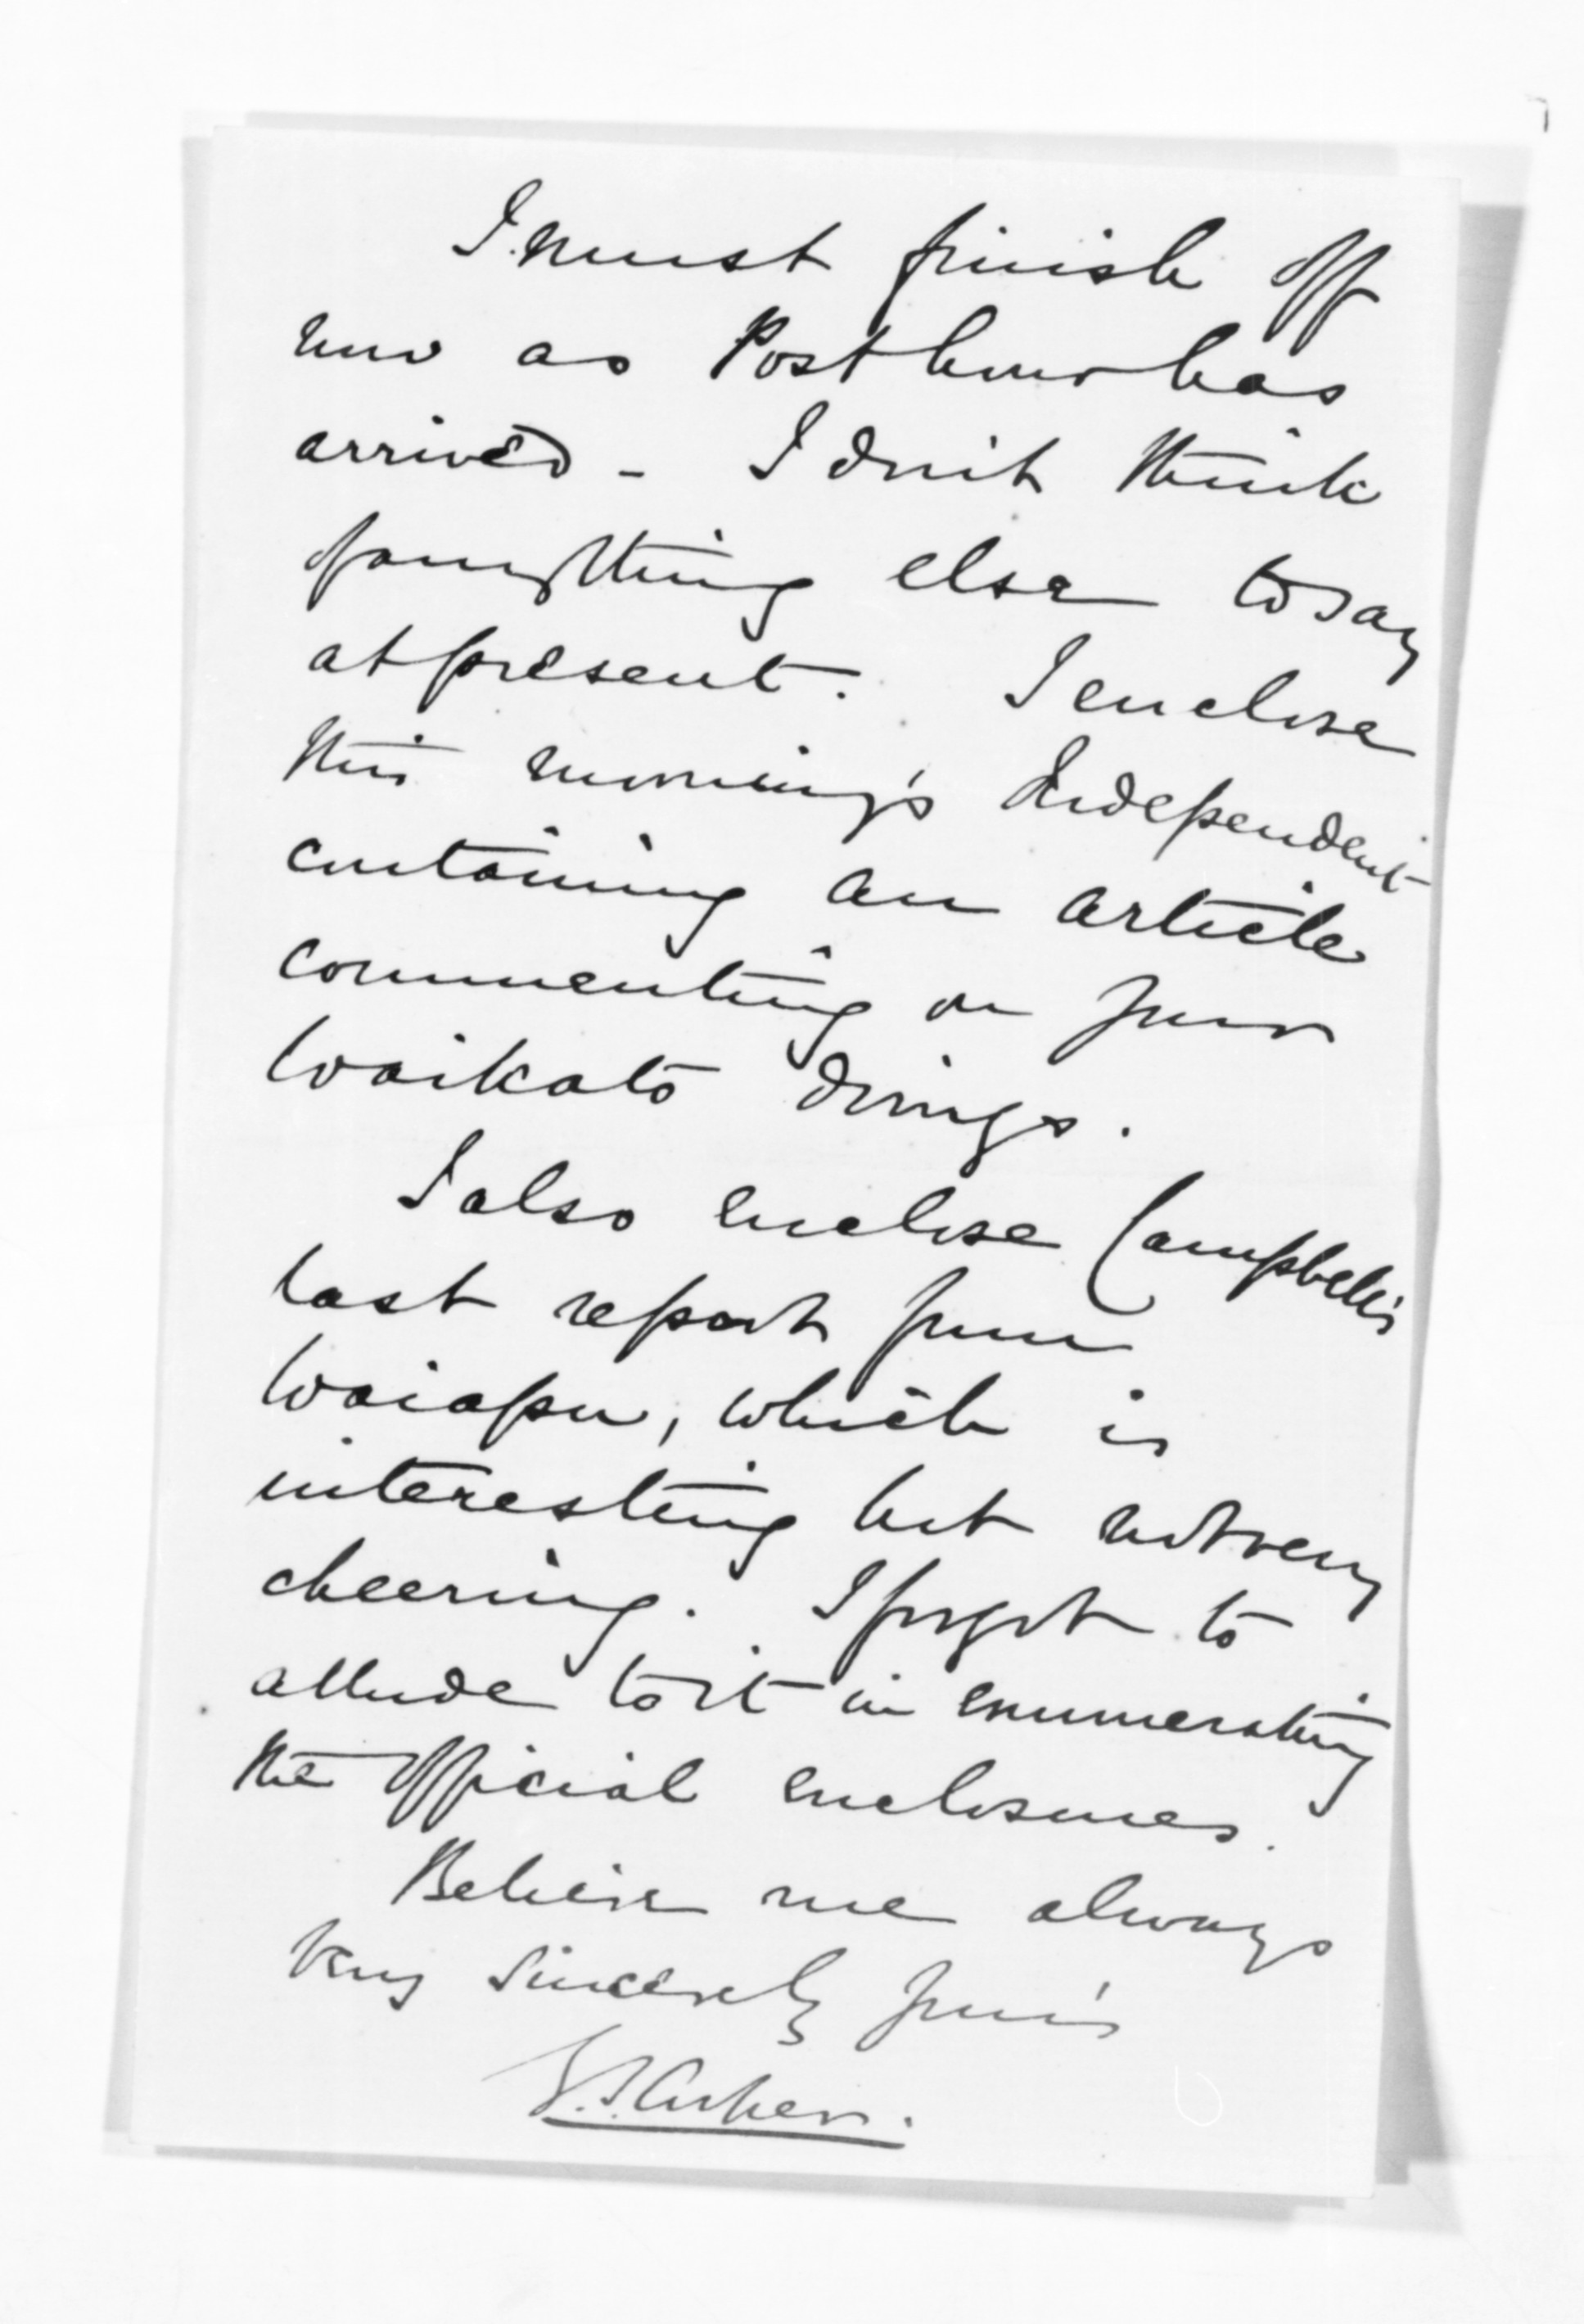 I must finish off
now as Post hour has
arrived - I don't think
of anything else to say
at present. I enclose
this morning's Independent
containing an article
commenting on your
Waikato doings.
I also enclose Campbell's
last report from
Waiapu, which is
interesting but not very
cheering. I forgot to
allude to it in enumerating
the official enclosures.
Believe me always
Very sincerely yours